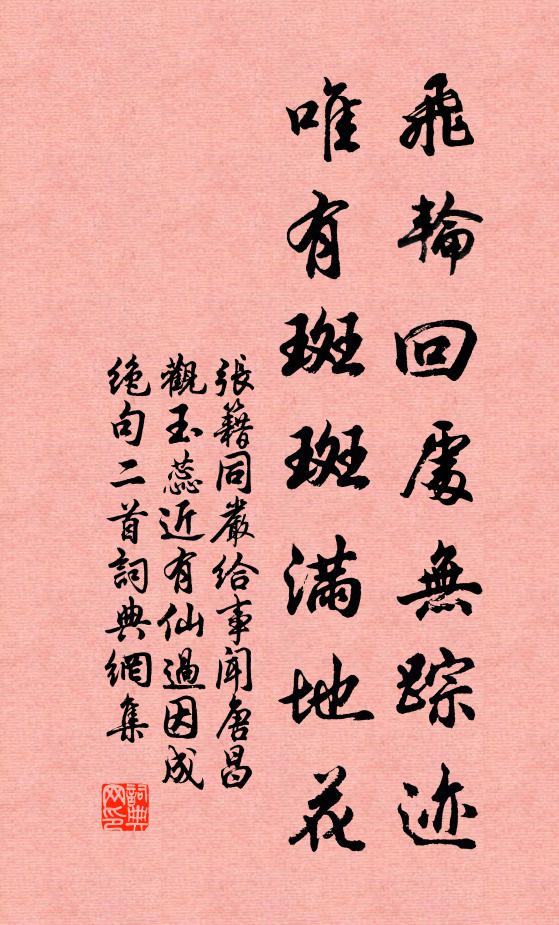 飛輪回處無踪迹
唯有斑斑滿地花
張籍同嚴給事聞唐昌
觀玉蕊近有仙過因成
絶句二首詞典網集
詞典網印